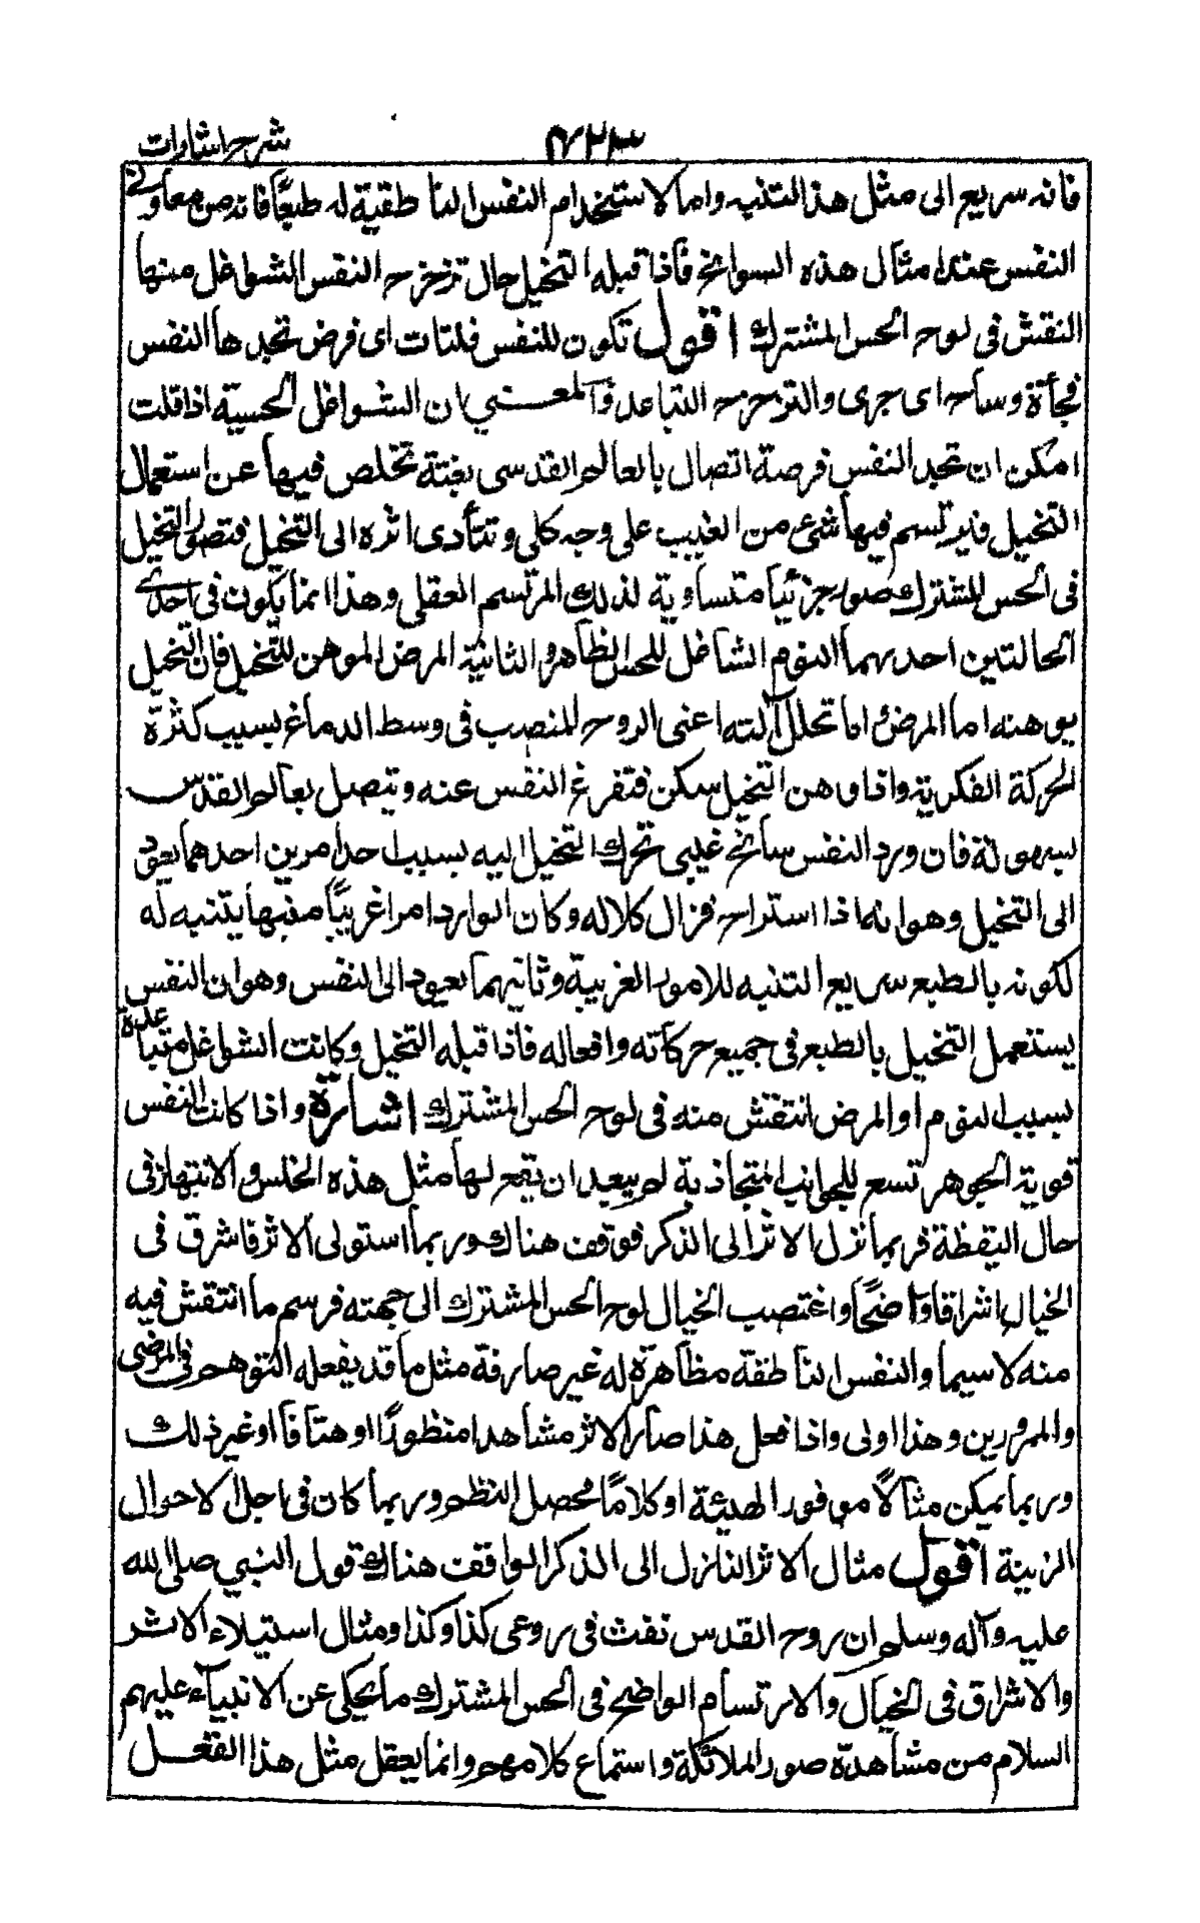 شرح اشارات
فانه سريع الى مثل هذا التنبه واما لاستخدام النفس الناطقية له طبعًا فانه من معاونى
النفس عند امثال هذه السوانح فأذا قبله التخيل حال تزحزح النفس الشواغل منها
النقش فى لوح الحس المشترك اقول تكون للنفس فلتات اى فرض تجدها النفس
فجأة وساح اى جرى والتزحزح التباعد والمعنى ان الشواغل الحسية اذا قلت
امكن ان تجد النفس فرصة اتصال بالعالم القدسى بغتة تخلص فيها عن استعمال
التخيل فيرتسم فيها شئ من الغيب على وجه كلى وتتأدى اثره الى التخيل فتصور التخيل
فى الحس المشترك صورا جزئيا متساوية لذلك المرتسم العقلى وهذا انما يكون فى احدى
الحالتين احدهما النوم الشاغل للحس الظاهر والثانية المرض الموهن للتخيل فان التخيل
يوهنه اما المرض واما تحلل آلته اعنى الروح المنصب فى وسط الدماغ بسبب كثرة
الحركة الفكرية واذا وهن التخيل سكن فتفرغ النفس عنه وتتصل بعالم القدس
بسهولة فان ورد النفس سانح غيبى تحرك التخيل اليه بسبب احد امرين احدهما يعود
الى التخيل وهو انه اذا استراح فزال كلاله وكان الوارد امرا غريبًا منبها يتنبه له
لكونه بالطبع سريع التنبه للامور الغريبة وثانيهما يعود الى النفس وهو ان النفس
يستعمل التخيل بالطبع فى جميع حركاته وافعاله فاذا قبله التخيل وكانت الشواغل متباعدة
بسبب النوم او المرض انتقش منه فى لوح الحس المشترك اشارة واذا كانت النفس
قوية الجوهر تسع للجوانب المتجاذبة لم يبعد ان يقع لها مثل هذه الخلس والانتهاز فى
حال اليقظة فربما نزل الاثر الى الذكر فوقف هناك وربما استولى الاثر فاشرق فى
الخيال اشراقا واضحًا واغتصب الخيال لوح الحس المشترك الى جهته فرسم ما انتقش فيه
منه لا سيما والنفس الناطقة مظاهرة له غير صارفة مثل ما قد يفعله التوهم فى المرضى
والممرورين وهذا اولى واذا فعل هذا صار الاثر مشاهدا منظورًا او هتافا او غير ذلك
وربما يمكن مثالاً موفور الهيئة او كلامًا محصل النظم وربما كان فى اجل الاحوال
الزينة اقول مثال الاثر النازل الى الذكر الواقف هناك قول النبى صلى الله
عليه وآله وسلم ان روح القدس نفث فى روعى كذا وكذا ومثال استيلاء الاثر
والاشراق فى الخيال والارتسام الواضح فى الحس المشترك ما يحكى عن الانبياء عليهم
السلام من مشاهدة صور الملائكة واستماع كلامهم وانما يعقل مثل هذا الفعل